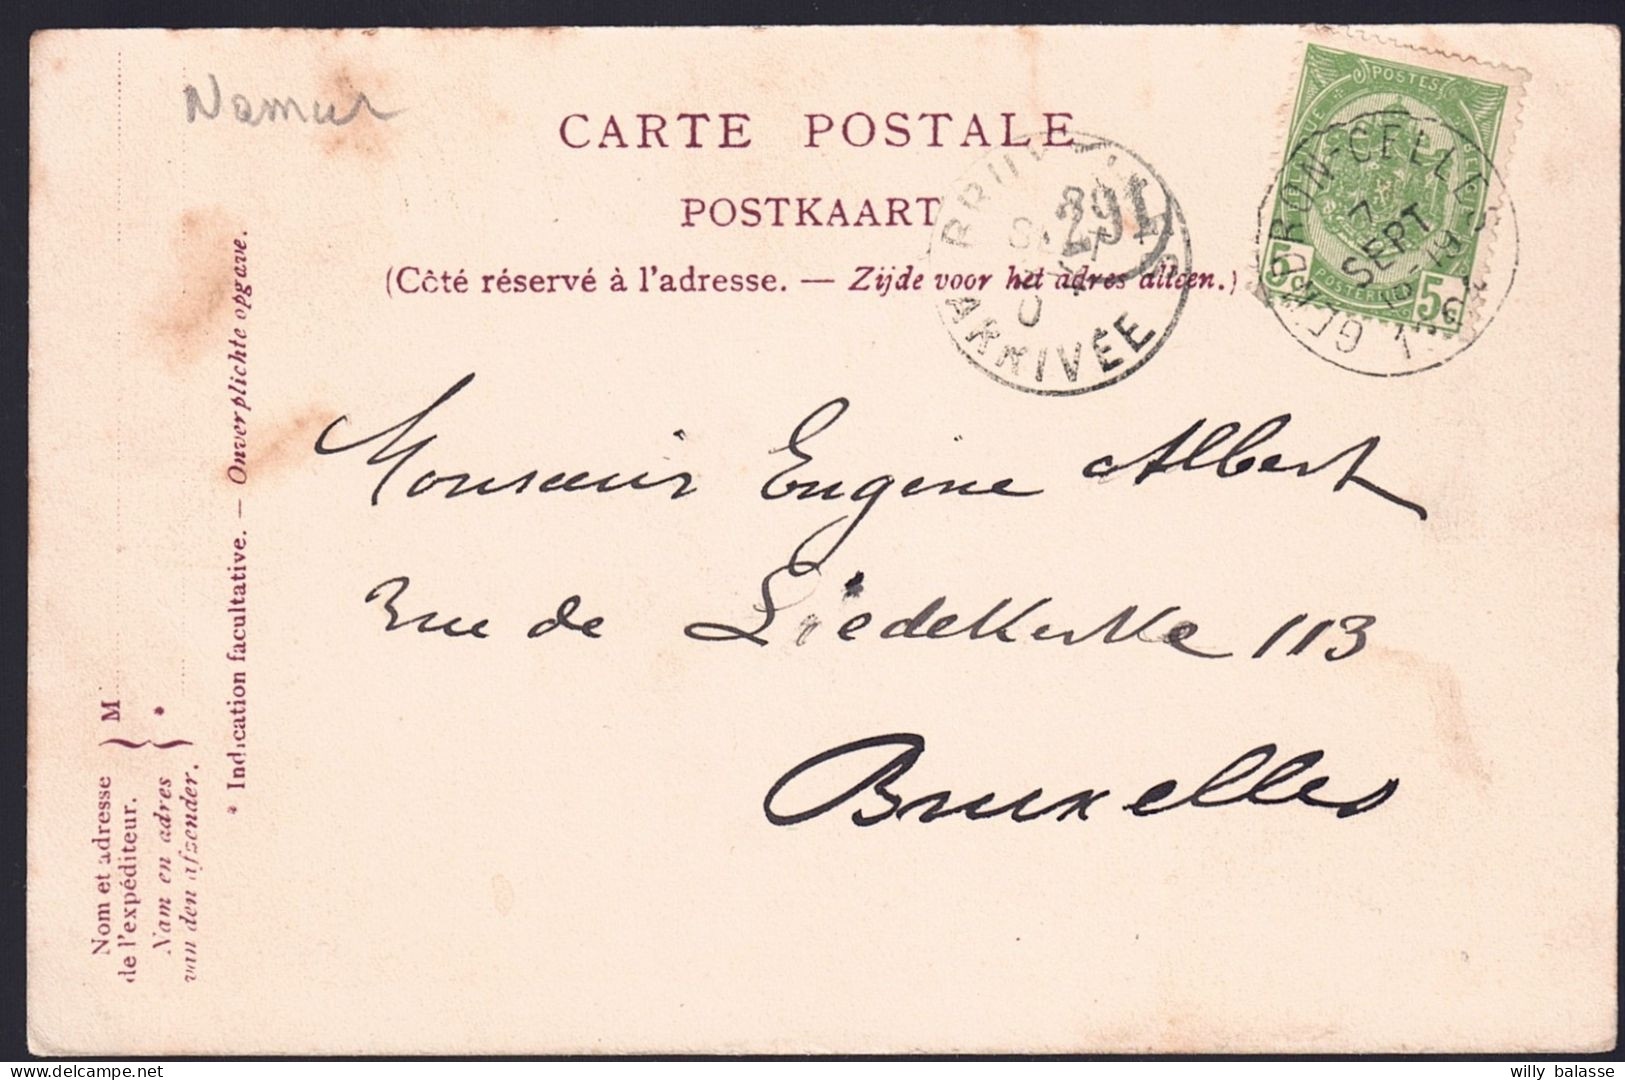 Namur
CARTE POSTALE
POSTKAART
(Côté réservé à l'adresse. — Zijde voor het adres alleen.)
POSTES
BELGIQUE
5
5
SEPT
ARRIVÉE
291
Monsieur Eugène Albert
rue de Liedekerke 113
Bruxelles
Nom et adresse
de l'expéditeur.
M
Nam en adres
van den afzender.
*
* Indication facultative. — Onverplichte opgave.
willy balasse